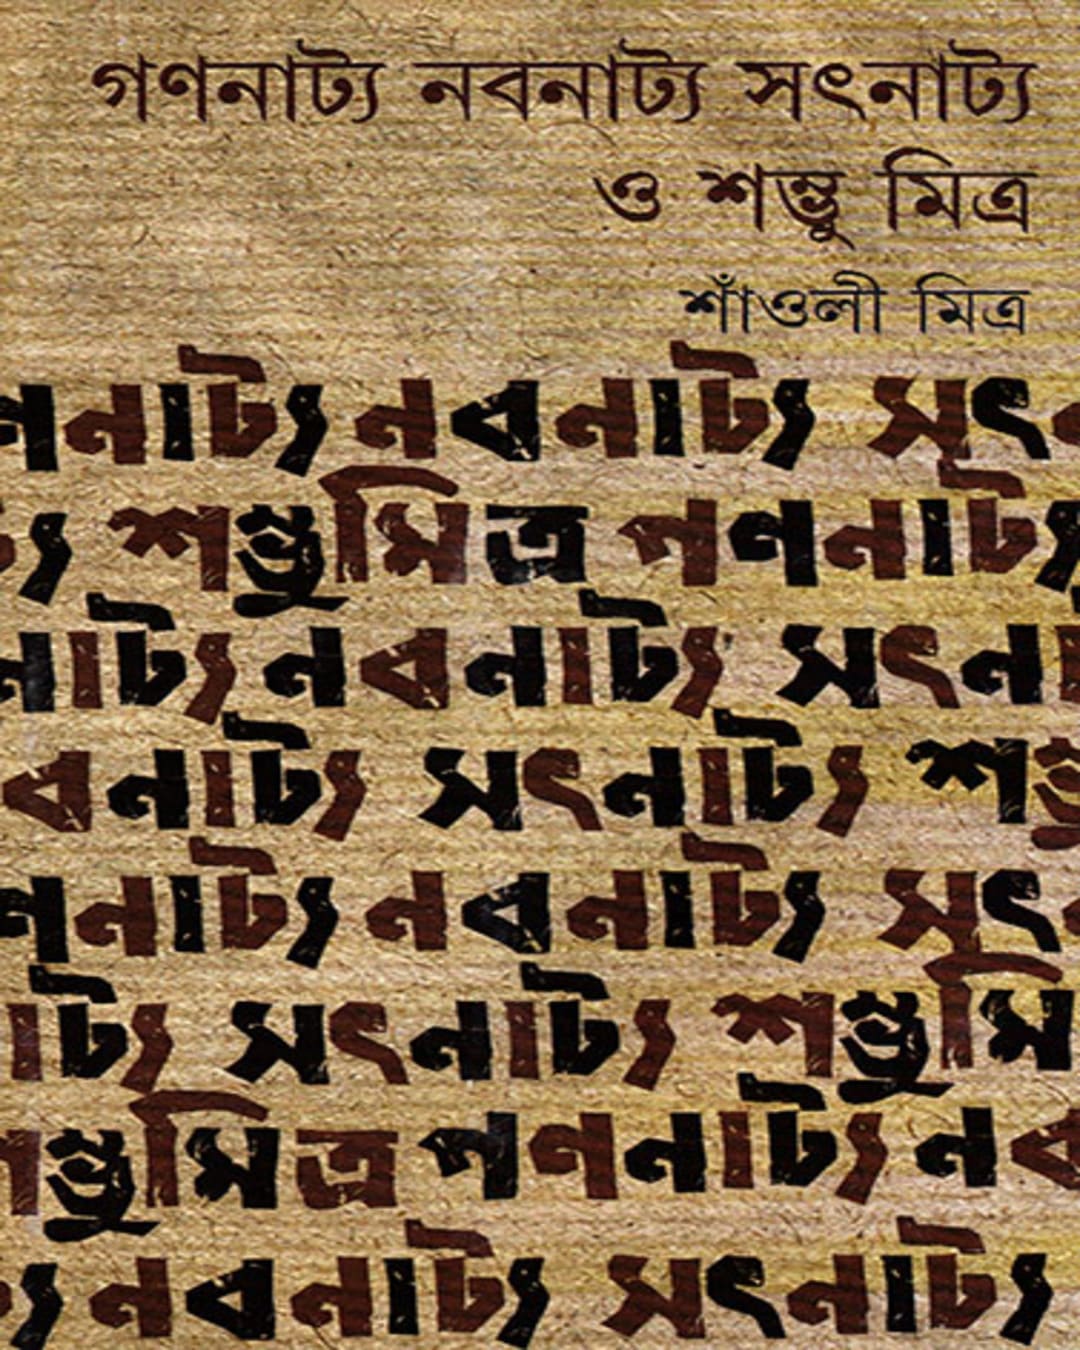 গণনাট্য নবনাট্য সৎনাট্য
ও শম্ভু মিত্র
শাঁওলী মিত্র
ণনাট্য নবনাট্য সৎন
ট্য শম্ভু মিত্র গণনাট্য
নাট্য নবনাট্য সৎনা
বনাট্য সৎনাট্য শম্ভু
ণনাট্য নবনাট্য সৎন
াট্য সৎনাট্য শম্ভু মি
শম্ভু মিত্র গণনাট্য নব
ট্য নবনাট্য সৎনাট্য